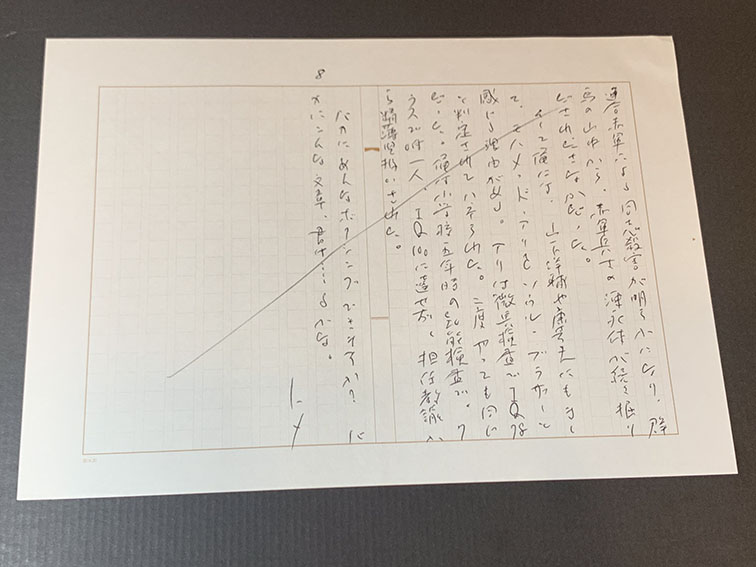 連合赤軍による同志殺害が明らかになり、群
馬の山中から、赤軍兵士の凍死体が続々掘り
だされださなかだった。
そして俺には、山下洋輔や康芳夫にもまし
て、モハメッド・アリをソウル・ブラザーと
感じる理由がある。アリは徴兵検査でIQ78
と判定されてハネられた。二度やっても同じ
だった。俺は小学時五年時の知能検査で、ク
ラスで唯一人、IQ100に達せず、担任教諭か
ら精薄児扱いされた。
バカにあんなボクシングできますか? バ
カにこんな文章、書け……るかな。
8